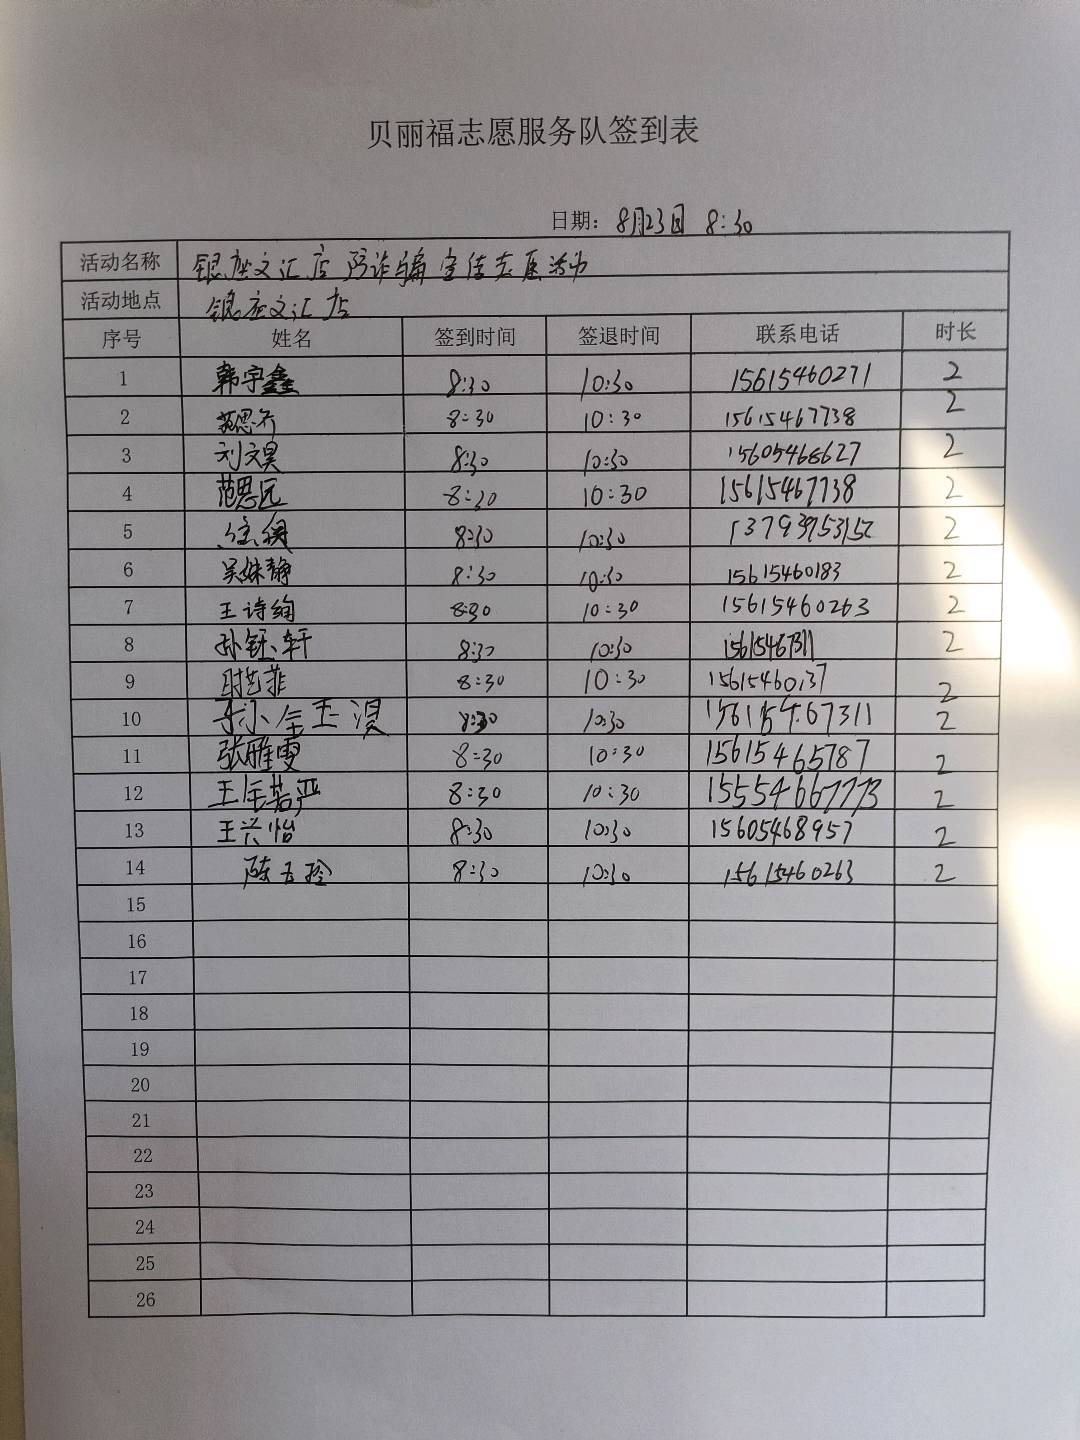 贝丽福志愿服务队签到表
日期：8月23日 8:30
活动名称 银座文汇店 防诈骗宣传志愿活动
活动地点 银座文汇店
序号 姓名 签到时间 签退时间 联系电话 时长
1 韩宇鑫 8:30 10:30 15615460271 2
2 范思齐 8:30 10:30 15615467738 2
3 刘文昊 8:30 10:30 15605468627 2
4 范思远 8:30 10:30 15615467738 2
5 8:30 10:30 13793975315 2
6 吴姝静 8:30 10:30 15615460183 2
7 王诗绚 8:30 10:30 15615460263 2
8 孙钰轩 8:30 10:30 15615467311 2
9 时艺菲 8:30 10:30 15615460137 2
10 8:30 10:30 15615467311 2
11 张雅雯 8:30 10:30 15615465787 2
12 8:30 10:30 15554667773 2
13 王兴怡 8:30 10:30 15605468957 2
14 陈玉玲 8:30 10:30 15615460263 2
15
16
17
18
19
20
21
22
23
24
25
26